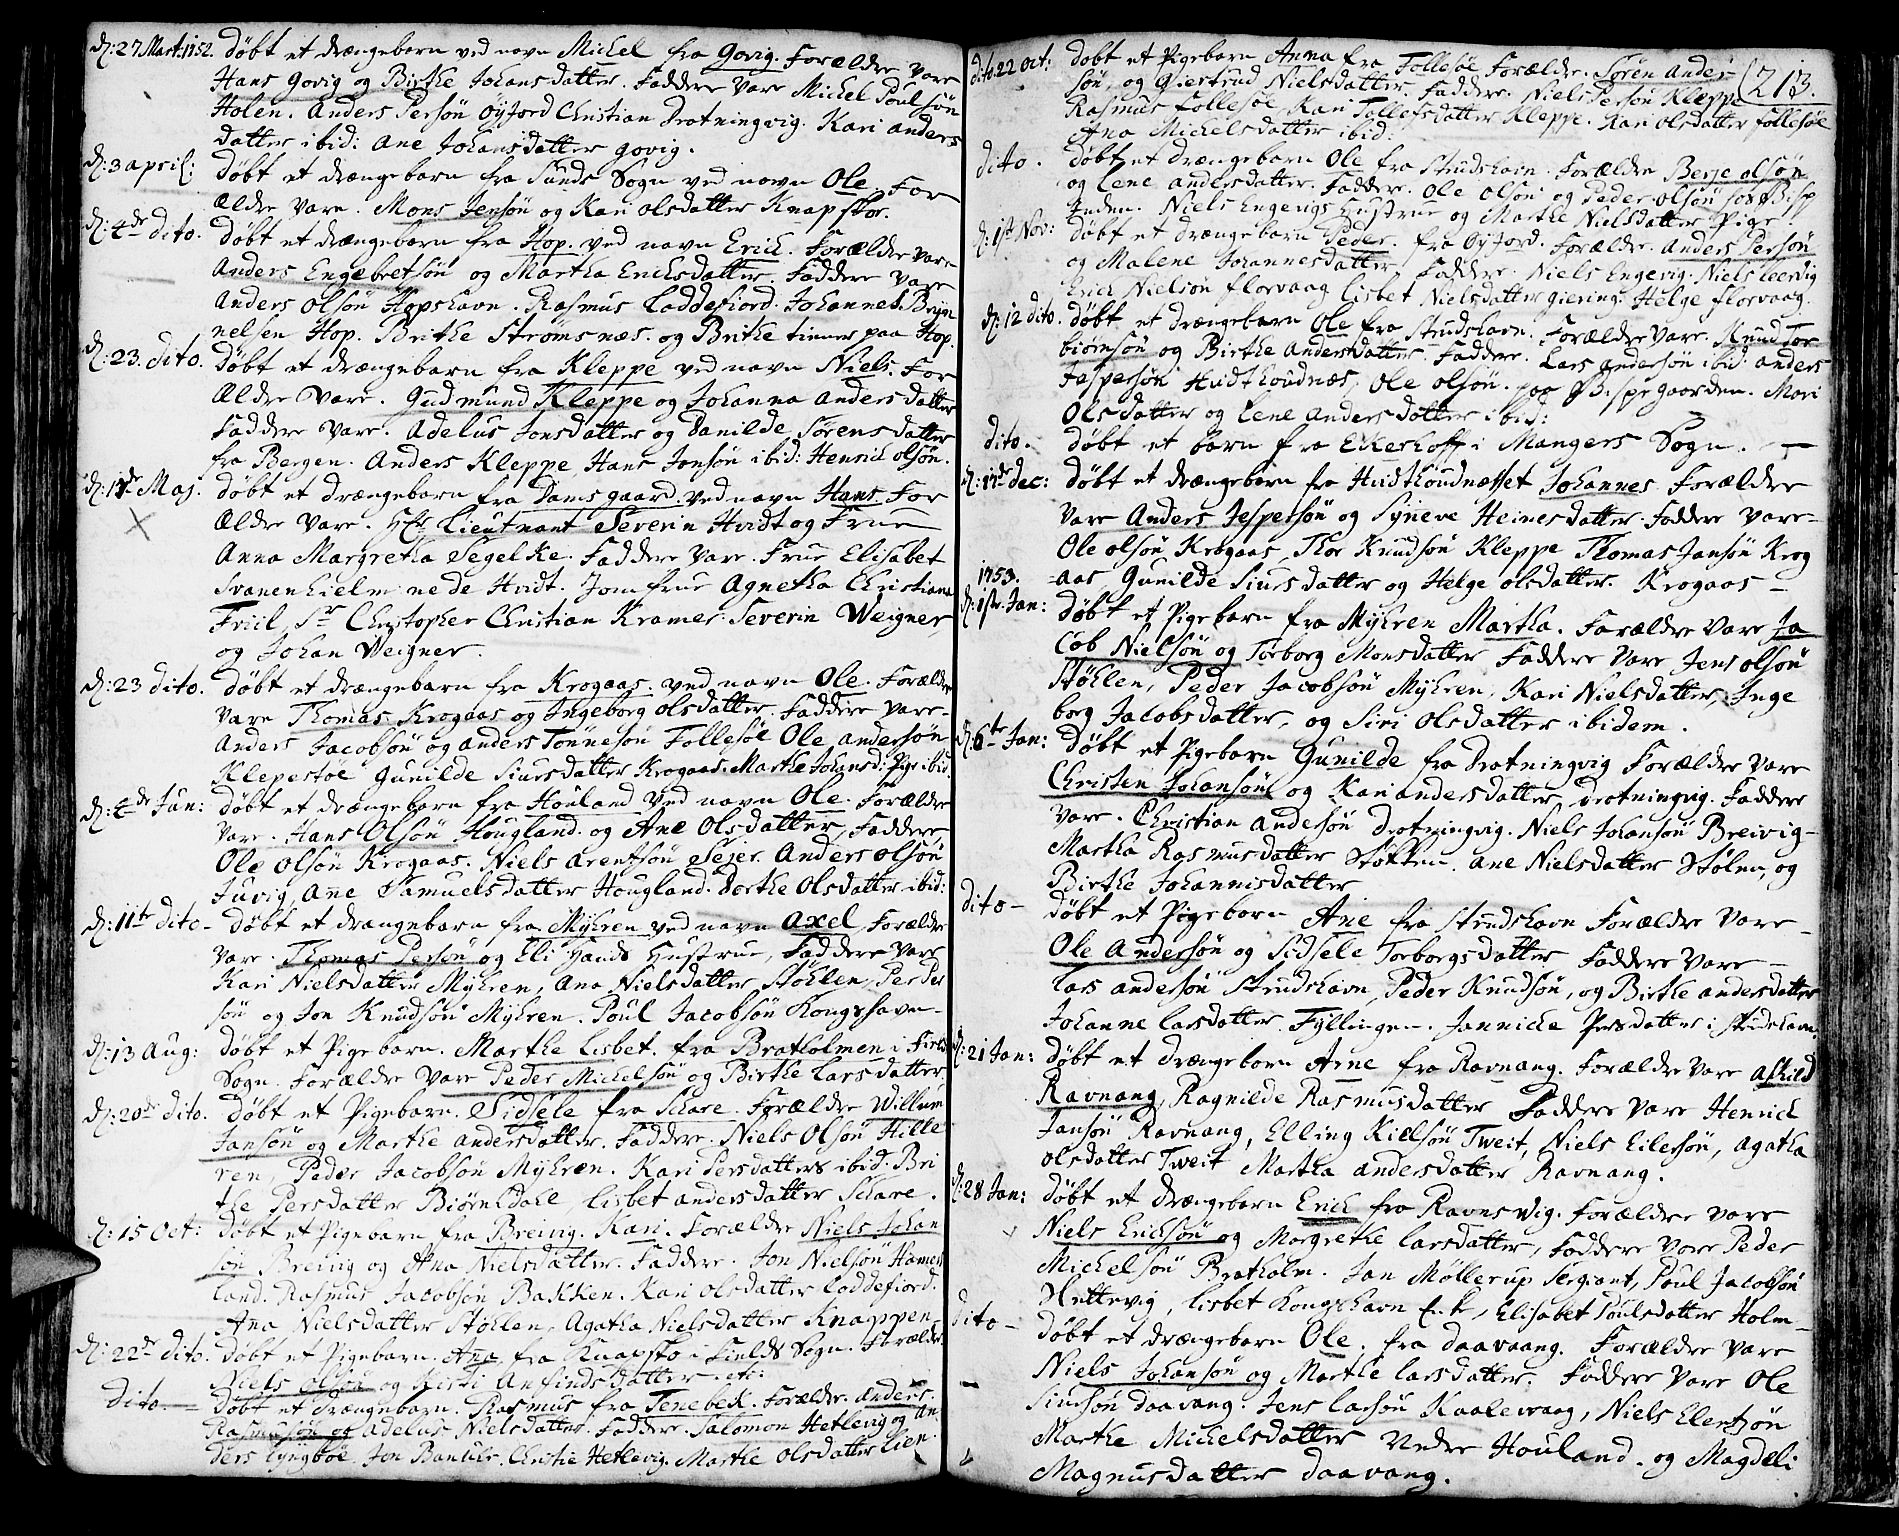 d: 27 Mart: 1752. døbt et drængebarn ved navn Michel fra Govig. Forældre vare
Hans Govig og Birthe Johansdatter. Faddere vare Michel Poulsøn
Holen. Anders Persøn Øyjord Christian Drotningvig. Kari anders
datter ibid: Ane Johansdatter govig.
d: 3 april: døbt et drængebarn fra Sunds Sogn ved navn Ole. For
ældre vare. Mons Jensøn og Kari olsdatter Knapskor.
d: 4de dito. døbt et drængebarn fra Hop. ved navn Erich. Forældre vare
Anders Engebretsøn og Martha Erichsdatter. Faddere vare
Anders olsøn Hopshavn. Rasmus Loddefiord. Johannes
nelsen Hop. Birthe Strømsnæs. og Birthe tiener paa Hop.
d: 23. dito. døbt et drængebarn fra Kleppe ved navn Niels. For
ældre vare. Gudmund Kleppe og Johanna Andersdatter
Faddere vare. Adelus Jonsdatter og Danilde Sørensdatter
fra Bergen. Anders Kleppe Hans Jonsøn ibid: Henrich olsøn.
Maj. døbt et drængebarn fra Damsgaard. ved navn Hans. For
ældre vare. Hr Lieutnant Severin Hvidt og Frue
Anna Margretha Segelke. Faddere vare. Frue Elisabet
Svanenhielm nede Hvidt. Jomfrue Agnetha Christiana
Friil, Sr Christopher Christian Kramer. Severin Weigner,
og Johan Weigner.
d: 23 dito. døbt et drængebarn fra Krogaas. ved navn Ole. Forældre
vare Thomas Krogaas og Ingeborg olsdatter. Faddere vare.
Anders Jacobsøn og anders Tønnesøn Follesøe Ole andersøn
Klepestøe Gunilde Siursdatter Krogaas. Marthe Johansd: Pige ibid.
d: 4de Jun: døbt et drængebarn fra Houland ved navn Ole. Forældre
vare. Hans Olsøn Hougland. og Ane Olsdatter, Faddere
Ole olsøn Krogaas. Niels arentsøn Sejer. Anders olsøn
Juvig, Ane Samuelsdatter Hougland. Dorthe Olsdatter ibid:
d: 11te dito - døbt et drængebarn fra Myhren ved navn axel. Forældre
vare. Thomas Persøn og Eli hands Hustrue, Faddere vare
Kari Nielsdatter Myhren, Ana Nielsdatter Støhlen, Per Per
søn og Jon Knudsøn Myhren. Poul Jacobsøn Kongshavn.
d: 13 Aug: døbt et Pigebarn. Marthe Lisbet. fra Bratholmen i Fields
Sogn. Forældre vare Peder Michelsøn og Birthe Larsdatter
d: 20de dito. døbt et Pigebarn. Sidsele fra Schare. Forældre Willum
Jansøn og Marthe andersdatter. Faddere. Niels Olsøn Hille
ren, Peder Jacobsøn Myhren. Kari Persdatter ibid: Bri
the Persdatter Biørndahl, Lisbet andersdatter Schare.
d: 15 Oct: døbt et Pigebarn fra Breivig. Kari. Forældre Niels Johan
søn Breivig og Ana Nielsdatter. Faddere. Jon Nielsøn Hamers
land. Rasmus Jacobsøn Bakken. Kari olsdatter Loddefiord.
Ana Nielsdatter Støhlen, Agatha Nielsdatter Knappen
d: 22de dito. døbt et Pigebarn. Ana fra Knapsko i Fields Sogn. Forældre
Niels olsøn og Kirsti Anfindsdatter etc:
Dito. døbt et drængebarn. Rasmus fra Tenebek. Forældre. anders
Rasmusøn og Adelus Nielsdatter. Faddere. Salomon Hetlevig og An
ders Lyngbøe Jon. Christie Hetlevig. Marthe Olsdatter Lien.
dito 22 oct: døbt et Pigebarn Anna fra Follesøe Forældre. Søren Ander
søn, og Giertrud Nielsdatter. Faddere. Niels Persøn Kleppe (213.
Rasmus Follesøe. Kari Tollefsdatter Kleppe. Kari olsdatter Follesøe
Ana Michelsdatter ibid:
dito. døbt et drængebarn Ole fra Strudshavn. Forældre Berje olsøn
og Lene andersdatter. Faddere. Ole olsøn og Peder olsøn hos Bisp
Inden. Niels Engevigs Hustrue og Marthe Nielsdatter Pige.
d: 1ste Nov: døbt et drængebarn Peder. fra Øyjord. Forældre. Anders Persøn
og Malene Johannesdatter Faddere. Niels Engevig. Niels Leervig
Erich Nielsøn Florvaag Lisbet Nielsdatter giering. Helge Florvaag.
d: 12 dito. døbt et drængebarn Ole fra Strudshavn. Forældre vare. Knud Tor
biørnsøn og Birthe Andersdatter. Faddere. Lars andersøn ibid: anders
Jespersøn Hvidthoudnæs, Ole olsøn. paa Bispegaarden. Mari
Olsdatter og Lene Andersdatter ibid:
dito. døbt et barn fra Ekerhoff i Mangers Sogn.
dec: døbt et drængebarn fra Hvidthoudnæsset Johannes. Forældre
vare Anders Jespersøn og Synneve Heinesdatter. Faddere vare.
Ole olsøn Krogaas, Thor Knudsøn Kleppe Thomas Jansøn Krog
aas Gunilde Siursdatter og Helge olsdatter. Krogaas
1753.
d: 1ste Jan: døbt et Pigebarn fra Myhren Martha. Forældre vare Ja
cob Nielsøn og Torborg Monsdatter Faddere vare Jens olsøn
Støhlen, Peder Jacobsøn Myhren, Kari Nielsdatter, Inge
borg Jacobsdatter, og Siri olsdatter ibidem.
d: 6te Jan: døbt et Pigebarn Gunilde fra Drotningvig Forældre vare
Christen Johansøn og Kari andersdatter Drotningvig. Faddere
vare. Christian andersøn Drotningvig. Niels Johansøn Breivig
Martha Rasmusdatter Støkken. ane Nielsdatter Støhen, og
Birthe Johannisdatter
dito - døbt et Pigebarn Ane fra Strudshavn Forældre vare
Ole andersøn og Sidsele Torborgsdatter Faddere vare
Lars andersøn Strudshavn, Peder Knudsøn, og Birthe andersdatter
Johanne Larsdatter Fyllingen. Jannicke Persdatter i Strudshavn.
d: 21 Jan: døbt et drængebarn Arne fra Ravnang. Forældre vare Askild
Ravnang, Ragnilde Rasmusdatter Faddere vare Henrich
Jansøn Ravnang, Elling Kielsøn Tweit, Niels Eilersøn, Agatha
olsdatter Tweit Martha andersdatter Ravnang.
d: 28 Jan: døbt et drængebarn Erich fra Ravnsvig. Forældre vare
Niels Erichsøn og Margrethe Larsdatter, Faddere vare Peder
Michelsøn Bratholm. Jan Møllerup Sergiant, Poul Jacobsøn
Hettevig, Lisbet Kongshavn Enk., Elisabet Poulsdatter Holm
Dito - døbt et drængebarn Ole. fra Daavaang. Forældre vare
Niels Johansøn og Marthe Larsdatter. Faddere vare Ole
Siursøn daavang. Jens Larsøn Kaalevaag, Niels Elertsøn
Marthe Michelsdatter Nedre Houland. og Magdeli
Magnusdatter Daavang.